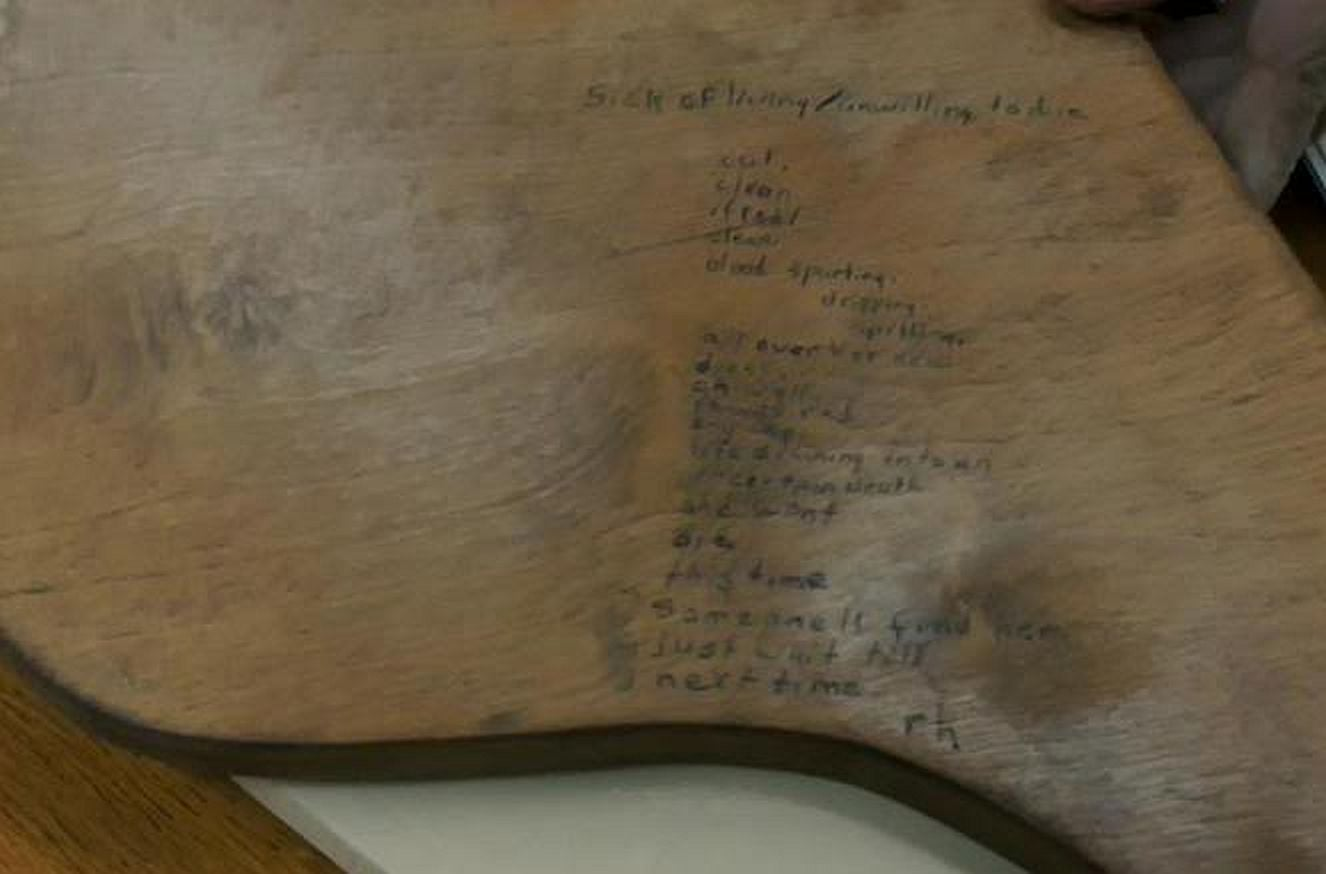 Sick of living/unwilling to die
cut.
clean
if red
clean.
blood spurting.
dripping.
spilling.
all over her new
dress
life draining into an
uncertain death
she wont
die
this time
Someone ll find her
just wait till
next time
rh